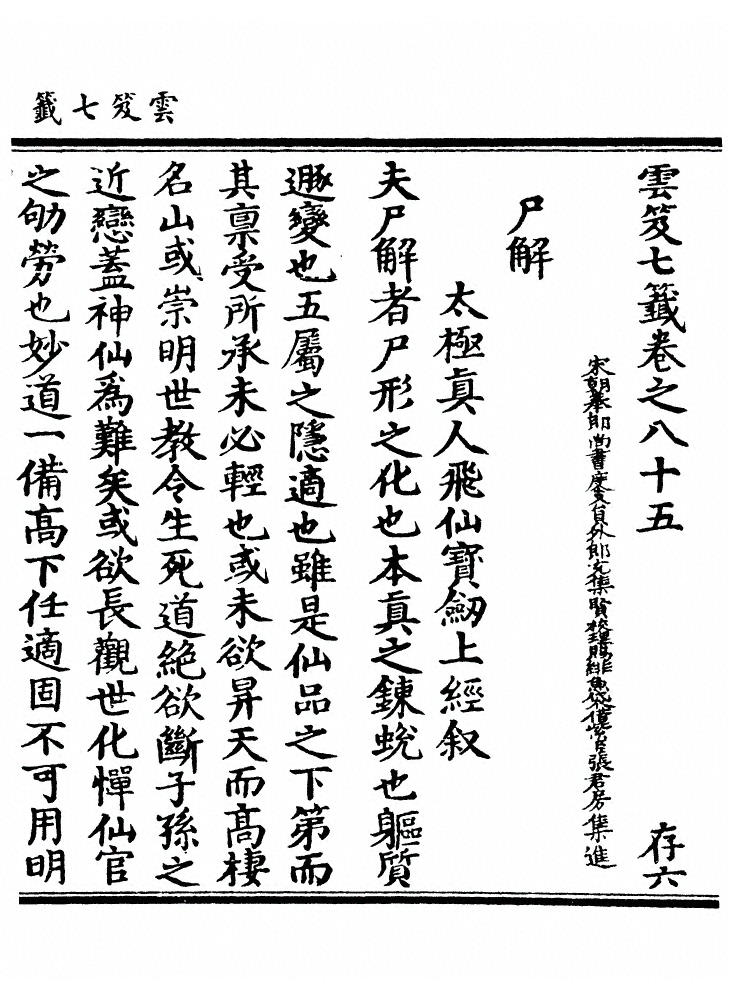 雲笈七籤
雲笈七籤卷之八十五　存六
宋朝奉郎尚書度支員外郎充集賢校理賜緋魚袋借紫臣張君房集進
尸解
太極真人飛仙寶劒上經叙
夫尸解者尸形之化也本真之鍊蛻也軀質
遯變也五屬之隱適也雖是仙品之下第而
其禀受所承未必輕也或未欲昇天而高棲
名山或崇明世教令生死道絶欲斷子孫之
近戀蓋神仙爲難矣或欲長觀世化憚仙官
之劬勞也妙道一備高下任適固不可用明